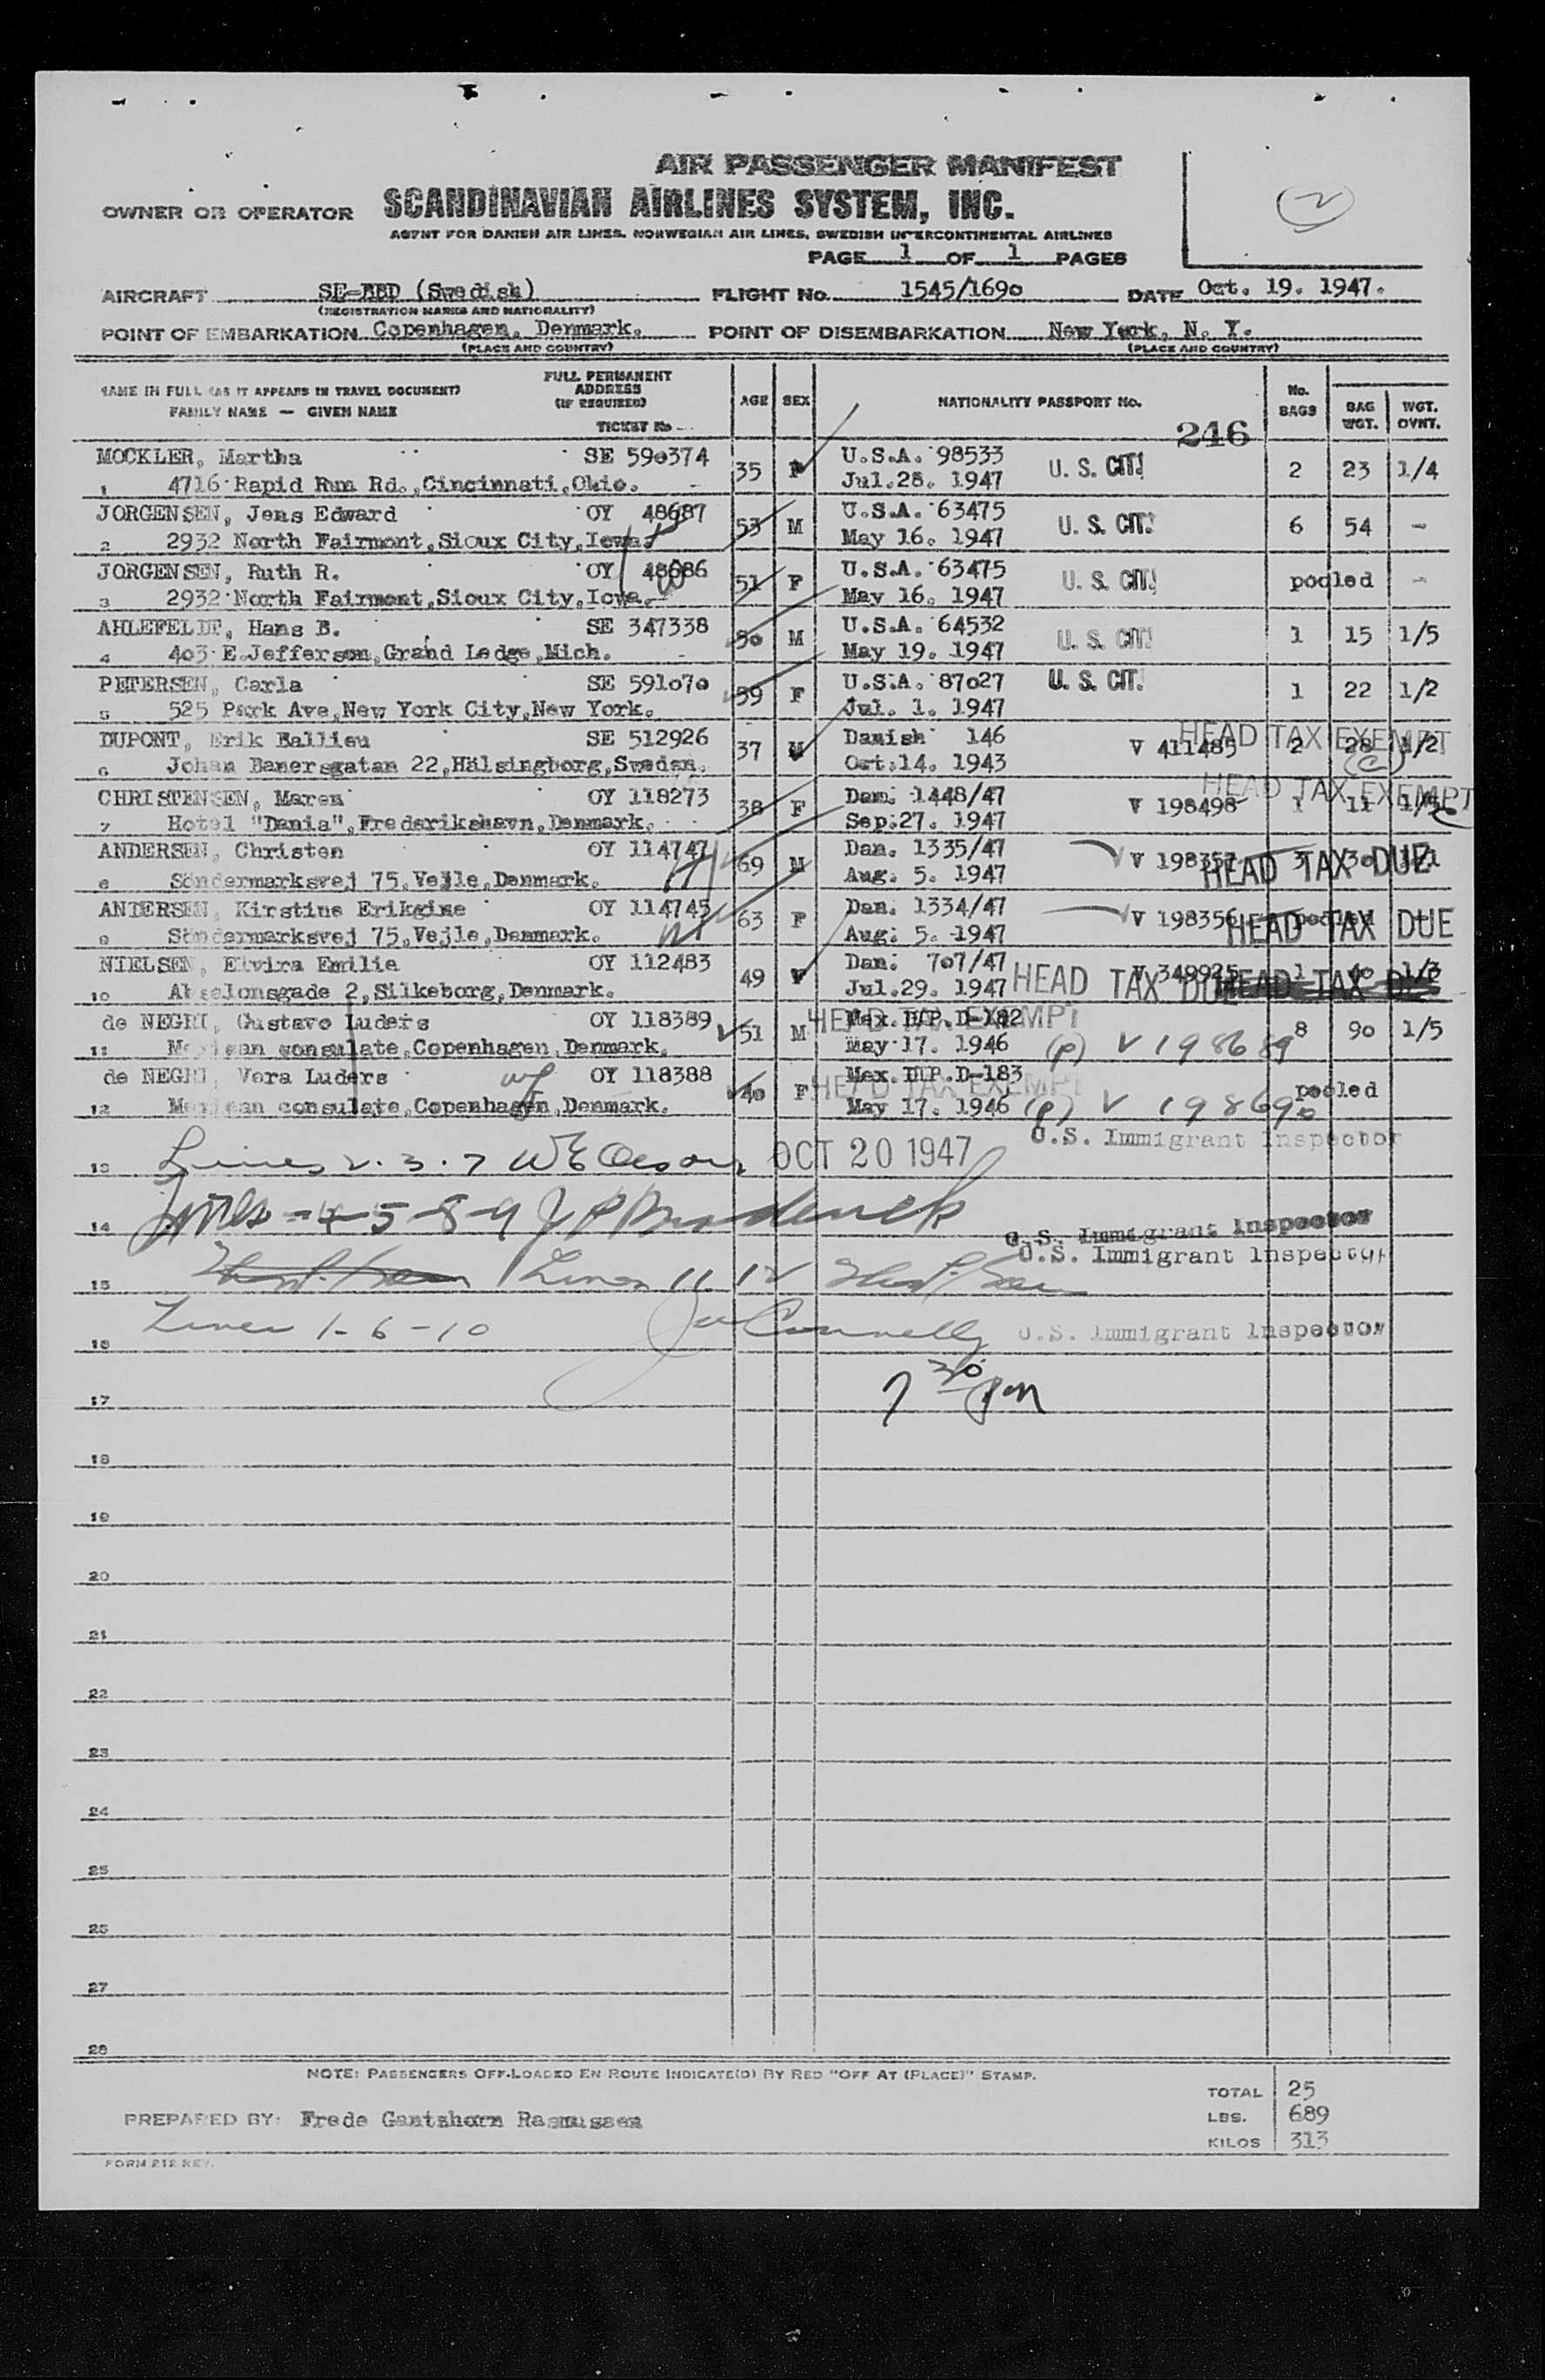 AIR PASSENGER MANIFEST
OWNER OR OPERATOR SCANDINAVIAN AIRLINES SYSTEM, INC.
AGENT FOR DANISH AIR LINES. NORWEGIAN AIR LINES. SWEDISH INTERCONTINENTAL AIRLINES
PAGE 1 OF 1 PAGES
AIRCRAFT (Swedish) FLIGHT No. 1545/1690 DATE Oct. 19. 1947.
(REGISTRATION MARKS AND NATIONALITY)
POINT OF EMBARKATION Copenhagen, Denmark. POINT OF DISEMBARKATION New York, N. Y.
(PLACE AND COUNTRY) (PLACE AND COUNTRY)
NAME IN FULL (AS IT APPEARS IN TRAVEL DOCUMENT) FULL PERMANENT ADDRESS (IF REQUIRED) AGE SEX NATIONALITY PASSPORT No. No. BAGS BAG WGT. WGT. OVNT.
FAMILY NAME — GIVEN NAME TICKET No 246
MOCKLER, Martha SE 590374 35 F U.S.A. 98533 U. S. CIT. 2 23 1/4
1 4716 Rapid Run Rd.,Cincinnati,Ohio. Jul.28. 1947
JORGENSEN, Jens Edward OY 48687 53 M U.S.A. 63475 U. S. CIT. 6 54 -
2 2932 North Fairmont,Sioux City,Iowa. May 16. 1947
JORGENSEN, Ruth R. OY 48686 51 F U.S.A. 63475 U. S. CIT. pooled -
3 2932 North Fairmont,Sioux City,Iowa. May 16. 1947
AHLEFELDT, Hans B. SE 347338 50 M U.S.A. 64532 U. S. CIT. 1 15 1/5
4 403 E.Jefferson,Grand Ledge,Mich. May 19. 1947
PETERSEN, Carla SE 591070 59 F U.S.A. 87027 U. S. CIT. 1 22 1/2
5 525 Park Ave,New York City,New York. Jul. 1. 1947
DUPONT, Erik Ballieu SE 512926 37 M Danish 146 V 411485 HEAD TAX EXEMPT 2 28 1/2
6 Johan Banersgatan 22,Hälsingborg,Sweden. Oct.14. 1943
CHRISTENSEN, Maren OY 118273 38 F Dan. 1448/47 V 198498 HEAD TAX EXEMPT 1 11
7 Hotel "Dania",Frederikshavn,Denmark. Sep.27. 1947
ANDERSEN, Christen OY 114747 69 M Dan. 1335/47 V 198357 HEAD TAX DUE 3 30
8 Söndermarksvej 75,Vejle,Denmark. Aug. 5. 1947
ANDERSEN, Kirstine Erikgine OY 114745 63 F Dan. 1334/47 V 198356 HEAD TAX DUE pooled
9 Söndermarksvej 75,Vejle,Denmark. Aug. 5. 1947
NIELSEN, Elvira Emilie OY 112483 49 F Dan. 707/47 V 349925 1 40 1/3
10 Absalonsgade 2,Silkeborg,Denmark. Jul.29. 1947 HEAD TAX DUE HEAD TAX DUE
de NEGRI, Gustavo Luders OY 118389 51 M Mex. DIP.D-182 HEAD TAX EXEMPT 8 90 1/5
11 Mexican consulate,Copenhagen,Denmark. May 17. 1946 (P) V 198689
de NEGRI, Vera Luders OY 118388 40 F Mex. DIP.D-183 HEAD TAX EXEMPT pooled
12 Mexican consulate,Copenhagen,Denmark. May 17. 1946 (P) V 198690
U.S. Immigrant Inspector
13 Lines 2. 3. 7 OCT 20 1947
14 Lines 4-5-8-9 J P Broderick U.S. Immigrant Inspector
U.S. Immigrant Inspector
15 Lines 11 12
16 Lines 1-6-10 Connelly U.S. Immigrant Inspector
7 30 PM
17
18
19
20
21
22
23
24
25
26
27
28
NOTE: PASSENGERS OFF-LOADED EN ROUTE INDICATE(D) BY RED "OFF AT (PLACE)" STAMP.
TOTAL 25
PREPARED BY: Frede Gantzhorn Rasmussen LBS. 689
KILOS 313
FORM 212 REV.